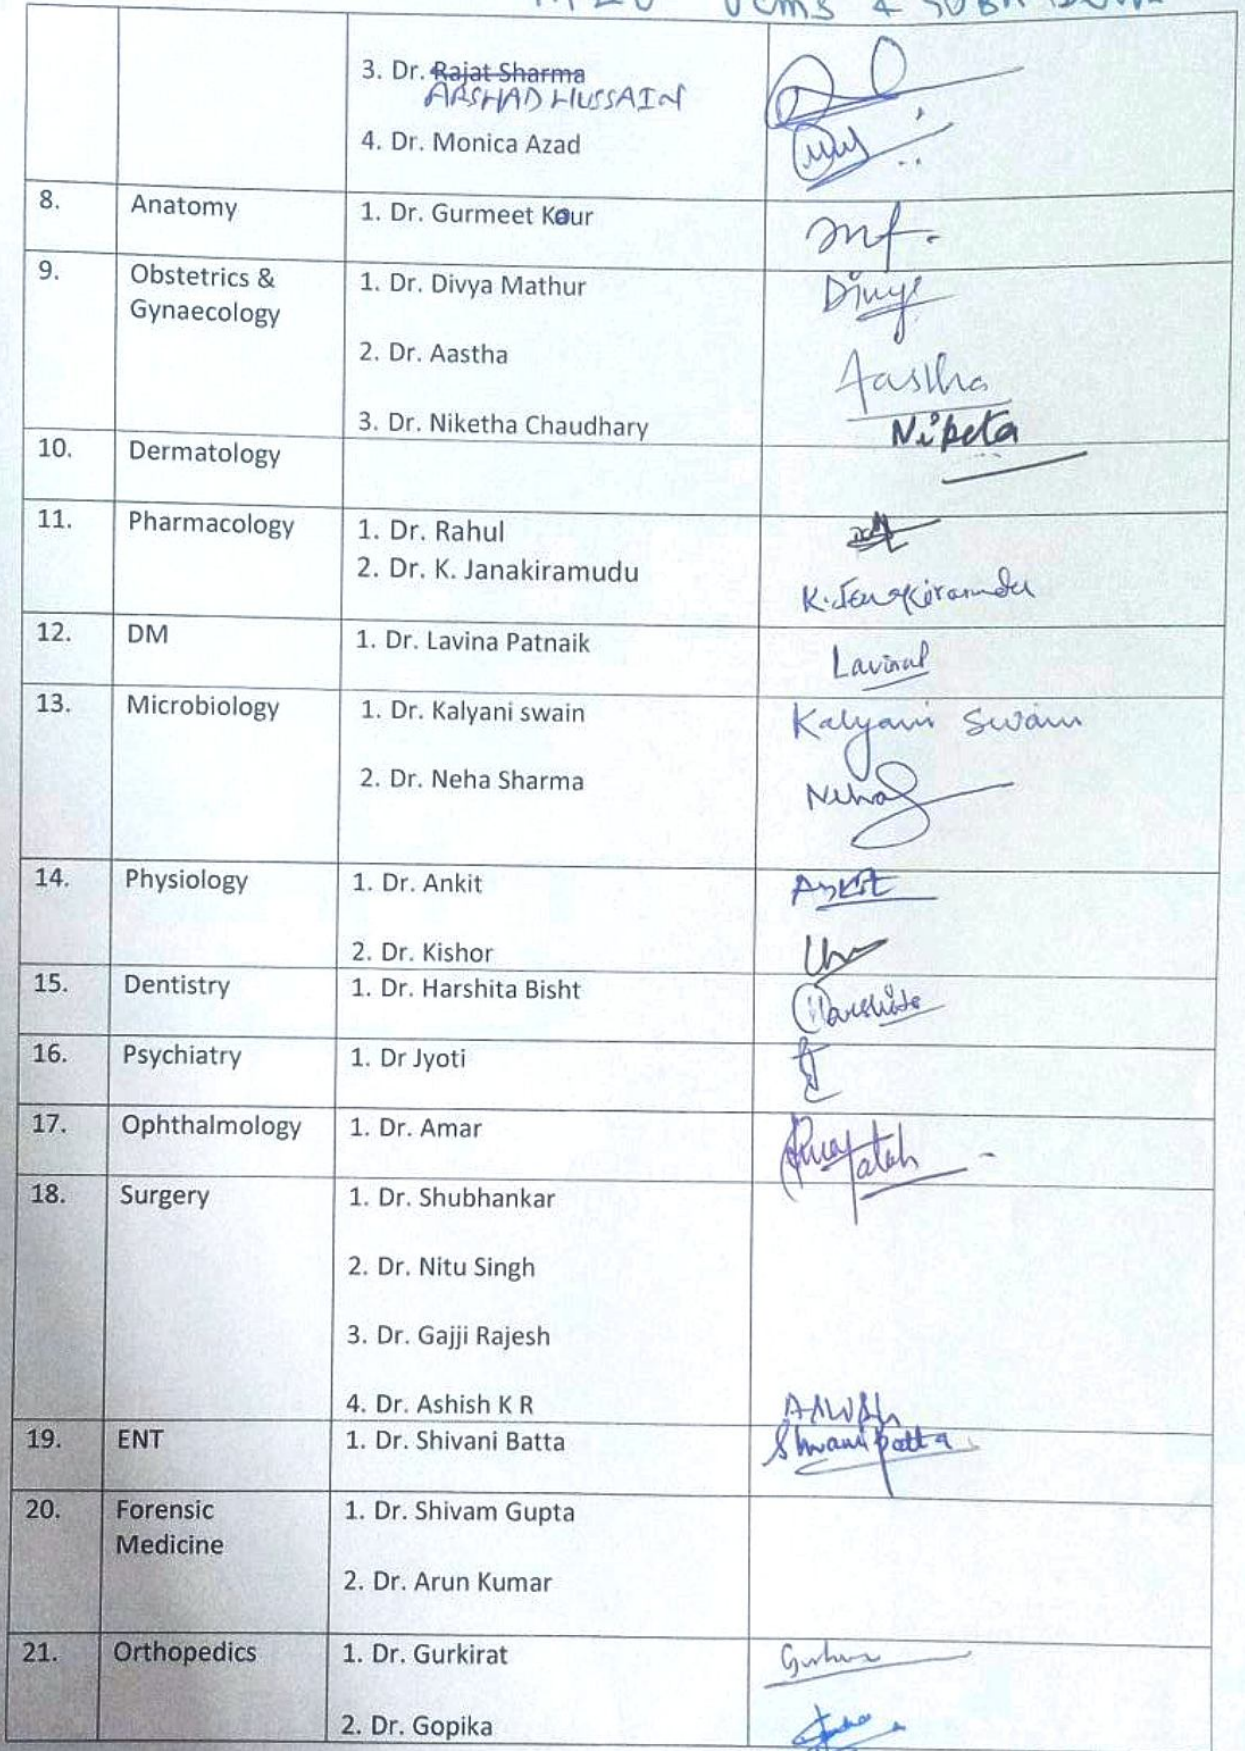 UCMS &
3. Dr. Rajat Sharma
ARSHAD HUSSAIN
4. Dr. Monica Azad
8. Anatomy 1. Dr. Gurmeet Kaur
9. Obstetrics & 1. Dr. Divya Mathur Divya
Gynaecology
2. Dr. Aastha Aastha
3. Dr. Niketha Chaudhary Niketa
10. Dermatology
11. Pharmacology 1. Dr. Rahul
2. Dr. K. Janakiramudu K. Janakiramudu
12. DM 1. Dr. Lavina Patnaik
13. Microbiology 1. Dr. Kalyani swain Kalyani Swain
2. Dr. Neha Sharma Neha
14. Physiology 1. Dr. Ankit Ankit
2. Dr. Kishor
15. Dentistry 1. Dr. Harshita Bisht Harshita
16. Psychiatry 1. Dr Jyoti
17. Ophthalmology 1. Dr. Amar
18. Surgery 1. Dr. Shubhankar
2. Dr. Nitu Singh
3. Dr. Gajji Rajesh
4. Dr. Ashish K R
19. ENT 1. Dr. Shivani Batta Shivani Batta
20. Forensic 1. Dr. Shivam Gupta
Medicine
2. Dr. Arun Kumar
21. Orthopedics 1. Dr. Gurkirat
2. Dr. Gopika